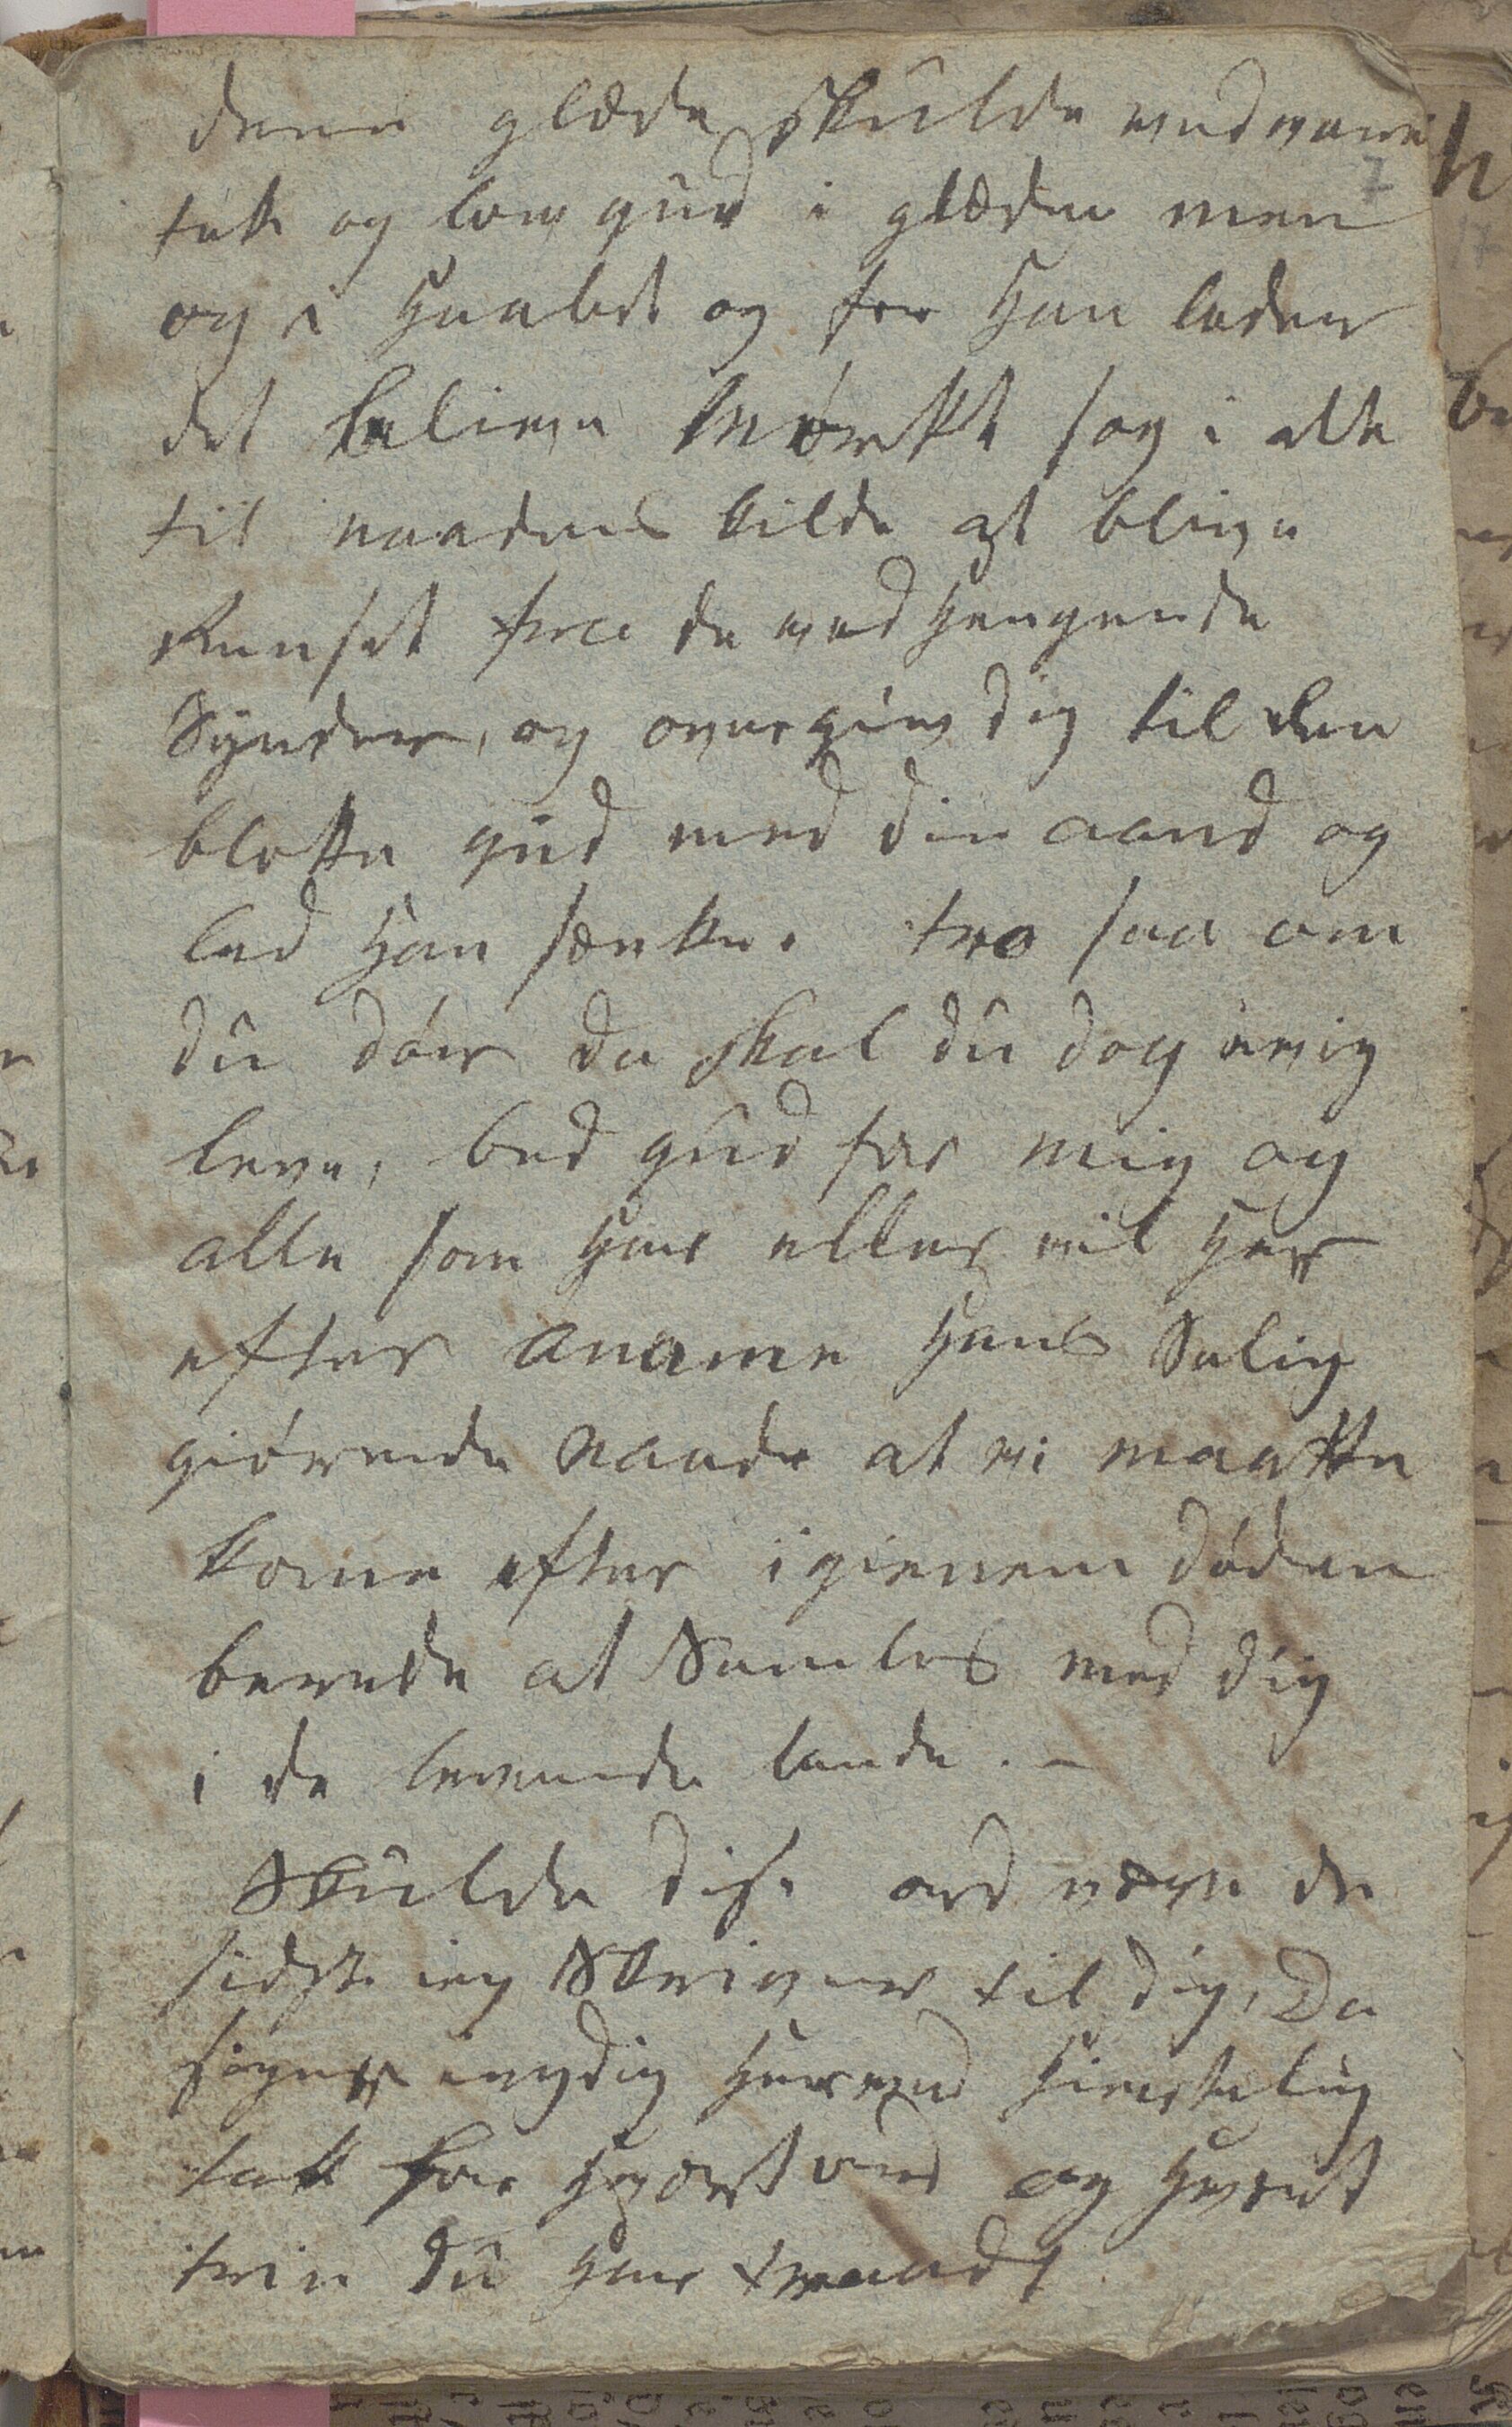 denne glæde skulde vedvare
7
tak og low gud i glæden men
og i Haabet og før Han lader
det bliwe Mørkt søg i alt
til naadens kilde at bliwe
Renset fra de ved Hengende
Synder, og overgiw dig til den
blotte gud med din aand og
lad Han sørke. tro saa om
du dør da skal du dog ewig
leve, bed gud for mig og
alle som Har eller vil Her
efter aname Hans Salig
giørende Naade at vi maatte
kome efter igienem døden
berede at Samles med dig
i de levende lande. –
Skulde dise ord være de
sidste ieg Skriver til dig, Da
siger ieg dig Herved Hiertelig
tak for Hvert ord og Hvert
trin du Har traadt